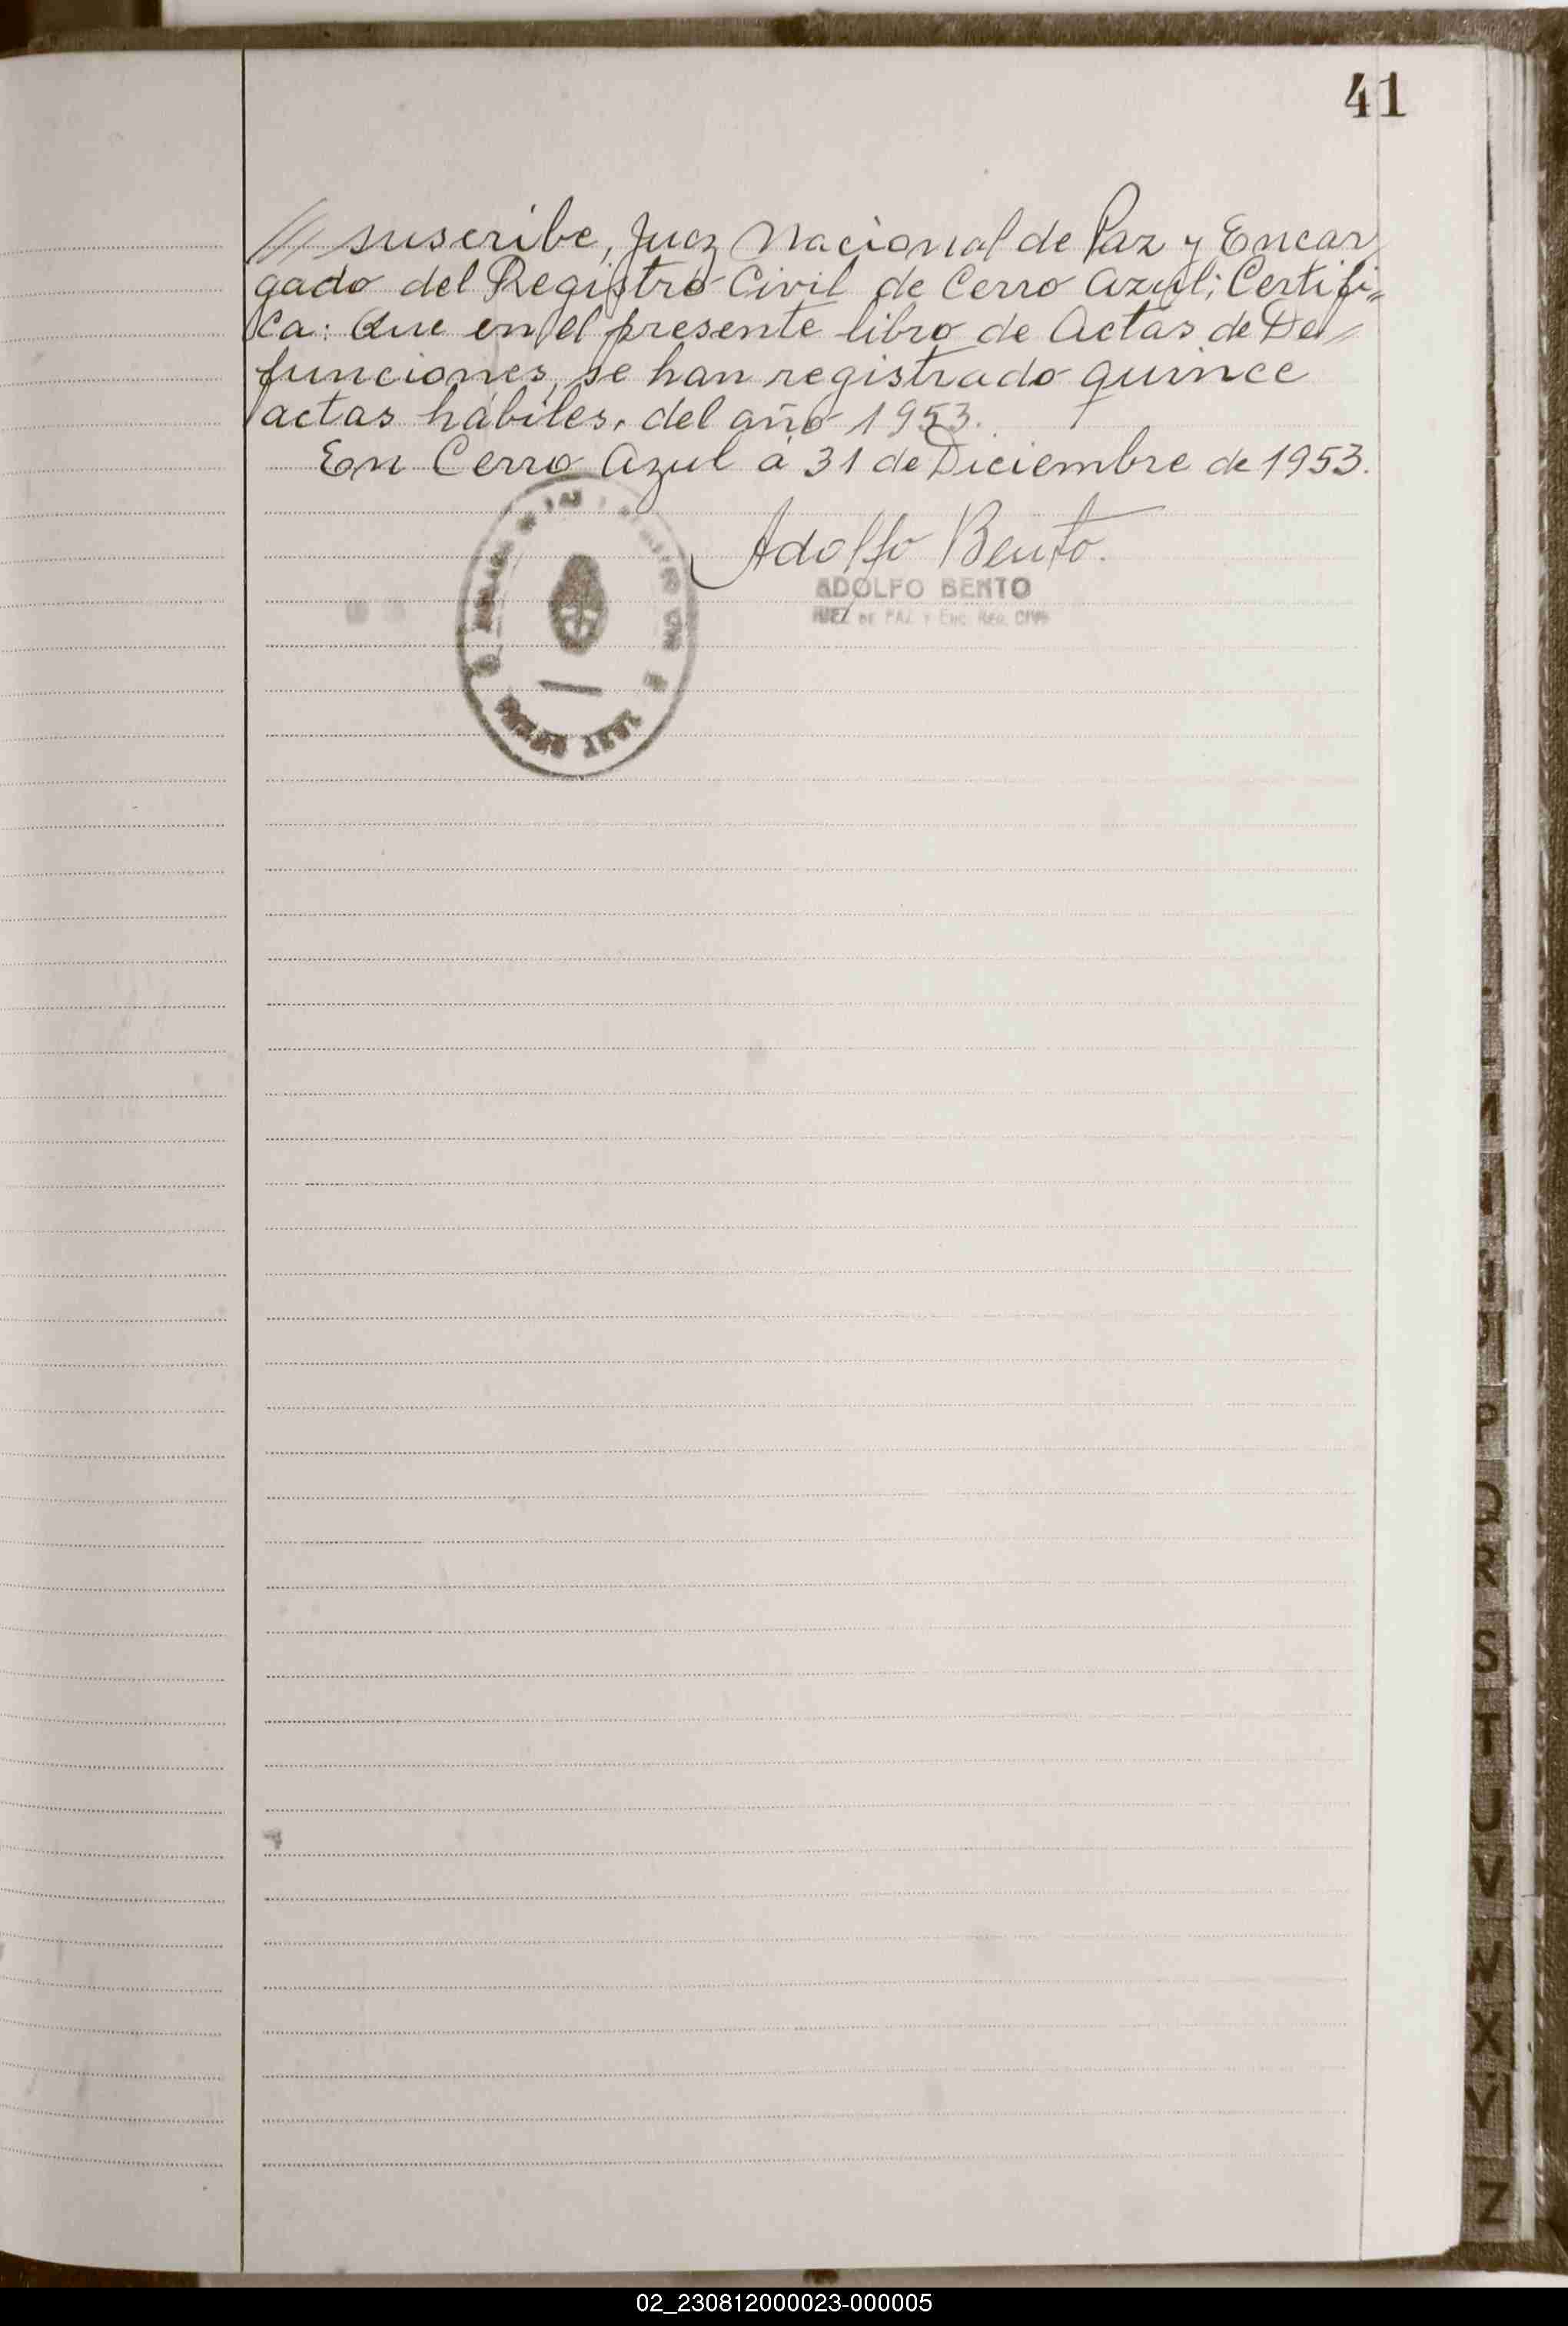 41
/// suscribe, Juez Nacional de Paz y Encar,
gado del Registro Civil de Cerro Azul; Certifi„
ca: Que en el presente libro de Actas de De„
funciones, se han registrado quince
actas hábiles, del año 1953.
En Cerro Azul a 31 de Diciembre de 1953.
Adolfo Bento.
ADOLFO BENTO
JUEZ DE PAZ Y ENC. REG. CIVIL
M
N
O
P
Q
R
S
T
U
V
W
X
Y
Z
02_230812000023-000005